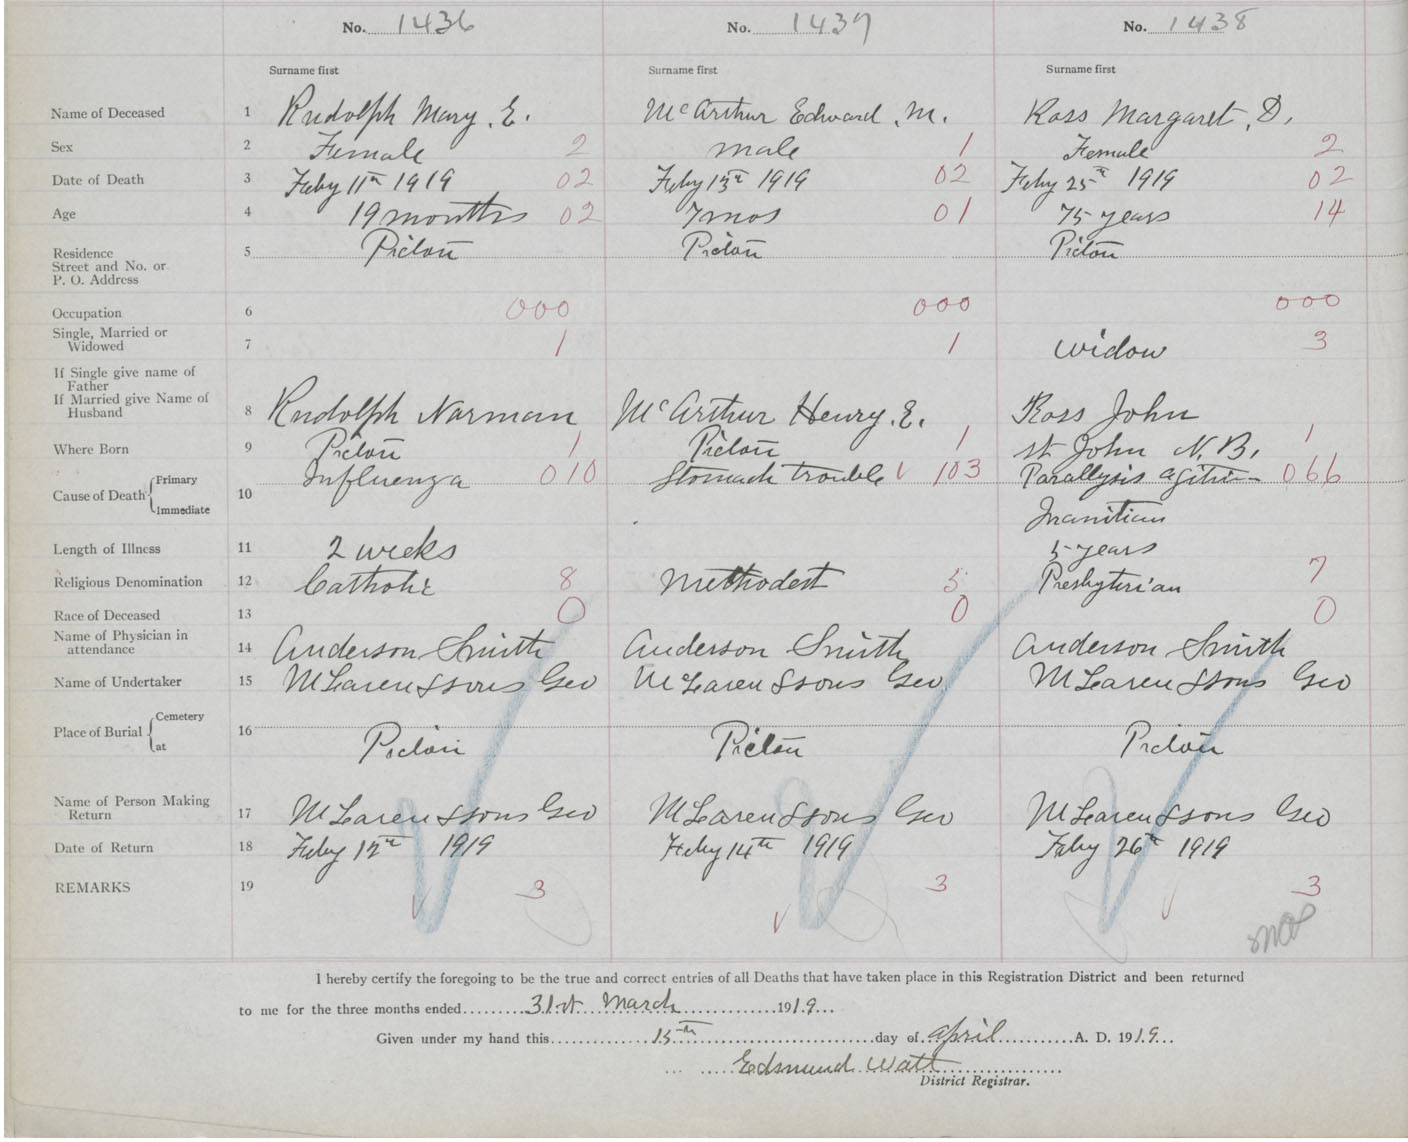 No. 1436 No. 1437 No. 1438
Surname first Surname first Surname first
Name of Deceased 1 Rudolph Mary. E. McArthur Edward. M. Ross Margaret. D.
Sex 2 Female 2 male 1 Female 2
Date of Death 3 Feby 11th 1919 02 Feby 13th 1919 02 Feby 25th 1919 02
Age 4 19 months 02 7 mos 01 75 years 14
Residence 5 Pictou Pictou Pictou
Street and No. or
P. O. Address
Occupation 6 000 000 000
Single, Married or 7 1 1 widow 3
Widowed
If Single give name of
Father
If Married give Name of
Husband 8 Rudolph Norman McArthur Henry. E. Ross John
Where Born 9 Pictou 1 Pictou 1 St John N. B. 1
Cause of Death { Primary Influenza 010 Stomach trouble √ 103 Parallysis 066
Immediate 10 Inanition
Length of Illness 11 2 weeks 5 years
Religious Denomination 12 Catholic 8 Methodist 5 Presbyterian 7
Race of Deceased 13 0 0 0
Name of Physician in
attendance 14 Anderson Smith Anderson Smith Anderson Smith
Name of Undertaker 15 McLaren & Sons Geo McLaren & Sons Geo McLaren & Sons Geo
Place of Burial { Cemetery 16
at Pictou Pictou Pictou
Name of Person Making
Return 17 McLaren & Sons Geo McLaren & Sons Geo McLaren & Sons Geo
Date of Return 18 Feby 12th 1919 Feby 14th 1919 Feby 26th 1919
REMARKS 19 3 3 3
I hereby certify the foregoing to be the true and correct entries of all Deaths that have taken place in this Registration District and been returned
to me for the three months ended 31st March 1919
Given under my hand this 15th day of April A. D. 1919
Edmund Watt
District Registrar.